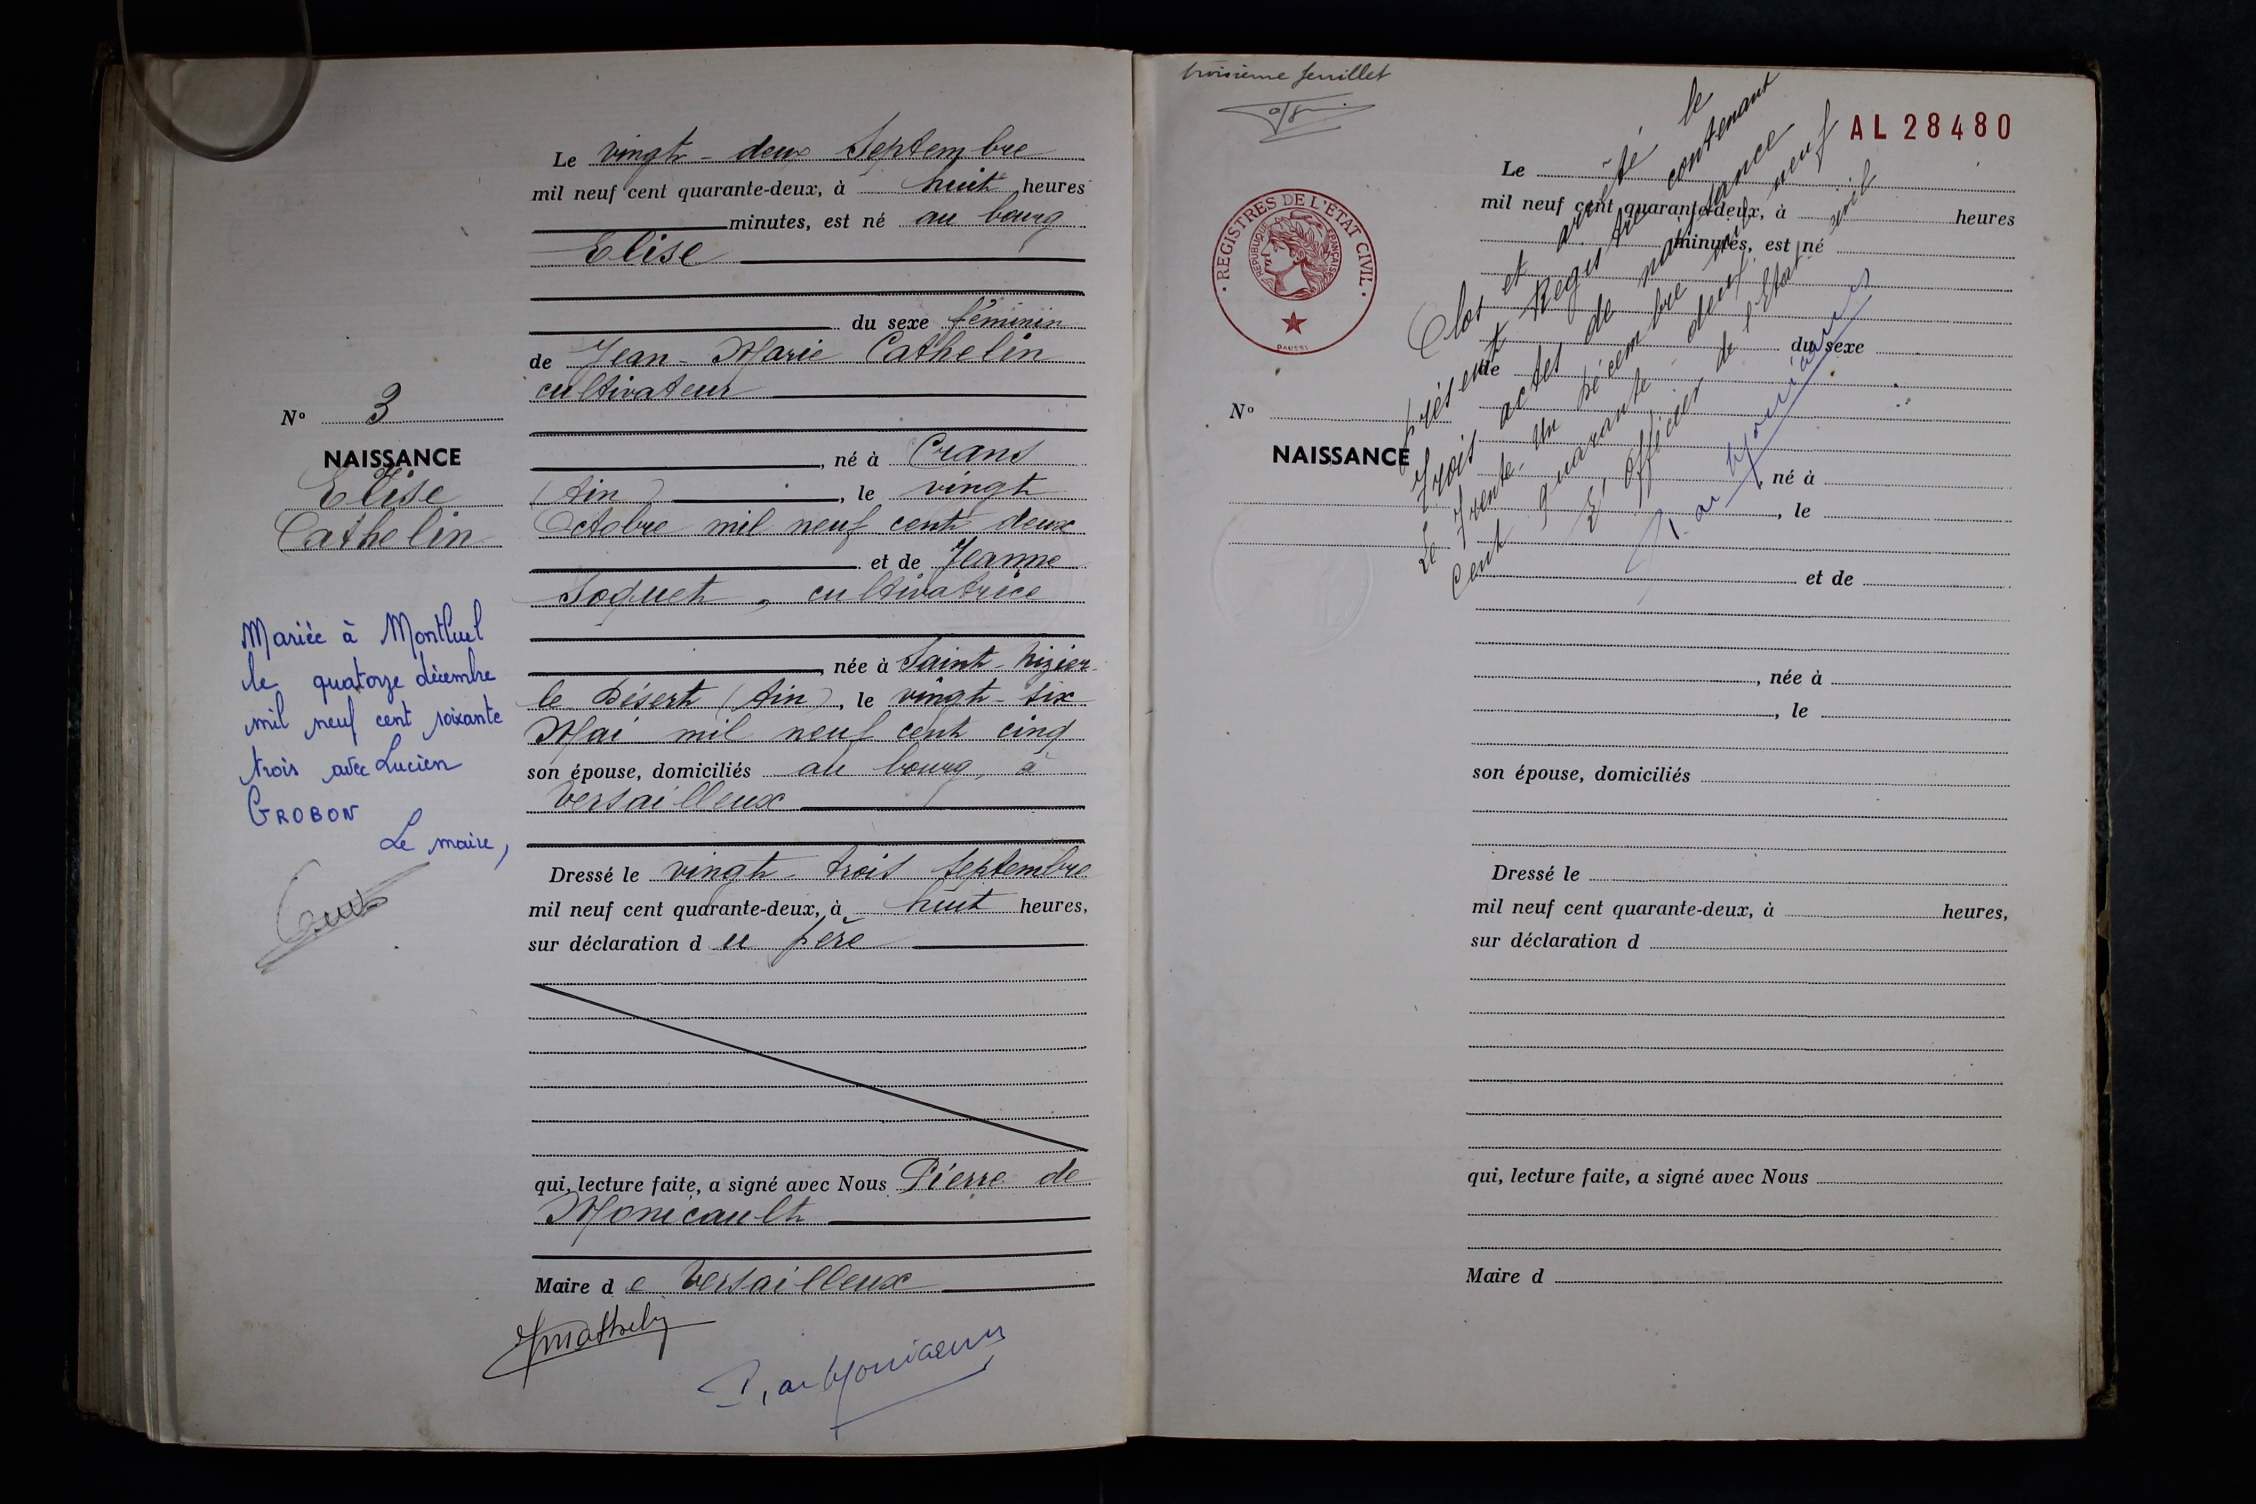 N° 3
NAISSANCE
de
Elise
Cathelin
Mariée à Montluel
le quatorze décembre
mil neuf cent soixante
trois avec Lucien
GROBON
Le maire,
Le vingt-deux Septembre
mil neuf cent quarante-deux, à huit heures
minutes, est né au bourg
Elise
du sexe féminin
de Jean-Marie Cathelin
cultivateur
, né à Crans
(Ain) , le vingt
Octobre mil neuf cent deux
et de Jeanne
Soquet, cultivatrice
, née à Saint-Nizier
le Désert (Ain), le vingt-six
Mai mil neuf cent cinq
son épouse, domiciliés au bourg, à
Versailleux
Dressé le vingt-trois septembre
mil neuf cent quarante-deux, à huit heures,
sur déclaration du père
qui, lecture faite, a signé avec Nous Pierre de
Monicault
Maire de Versailleux
troisième feuillet
AL 28480
REGISTRES DE L'ÉTAT CIVIL
RÉPUBLIQUE FRANÇAISE
N°
NAISSANCE
Le
mil neuf cent quarante-deux, à heures
minutes, est né
du sexe
de
, né à
, le
et de
, née à
, le
son épouse, domiciliés
Dressé le
mil neuf cent quarante-deux, à heures,
sur déclaration d
qui, lecture faite, a signé avec Nous
Maire d
Clos et arrêté le
présent Registre contenant
Trois actes de naissance
Le Trente-un Décembre mil neuf
Cent quarante-deux
L'Officier de l'Etat civil